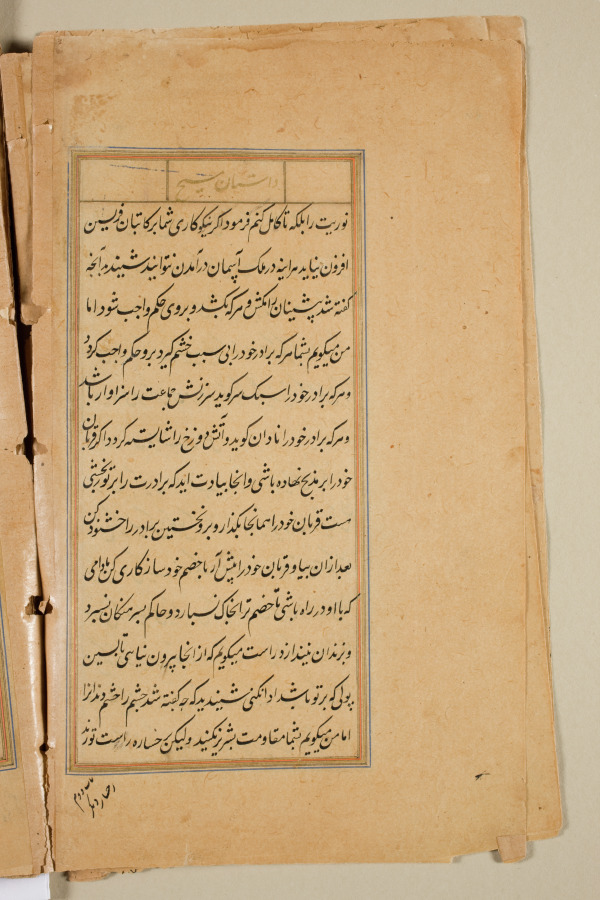 داستان مسیح
توریت را بلکه تا کامل کنم فرمود اگر نیکوکاری شما بر کاتبان و فریسین
افزون نیاید هراینه در ملک آسمان درآمدن نتوانید شنیدند هرآنچه
گفته شد پیشینان را مکش و هرکه بکشد و بروی حکم واجب شود اما
من میگویم بشما هرکه برادر خود را بی سبب خشم گیرد برو حکم واجب گردد
و هرکه برادر خود را سبک سر گوید سرزنش جماعت را سزاوار باشد
و هرکه برادر خود را نادان گوید و آتش دوزخ را شایسته گردد اگر قربان
خود را بر مذبح نهاده باشی و انجا بیادت آید که برادرت را بر تو بخششی
هست قربان خود را همانجا بگذار و برو نخستین برادر را خشنود کن
بعد ازان بیا و قربان خود را پیش آر با خصم خود سازکاری کن مادامی
که با او در راه باشی تا خصم ترا بحاکم نسپارد و حاکم بسرهنگان نسپرد
و بزندان نیندازد راست میگویم که از انجا بیرون نیائی تا پسین
پولی که بر تو باشد ادا نکنی شنیدید که چه گفته شد چشم را چشم دندانرا
اما من میگویم بشما مقاومت بشر نکنید ولیکن رخساره راست تو زند
رخسار دیگر